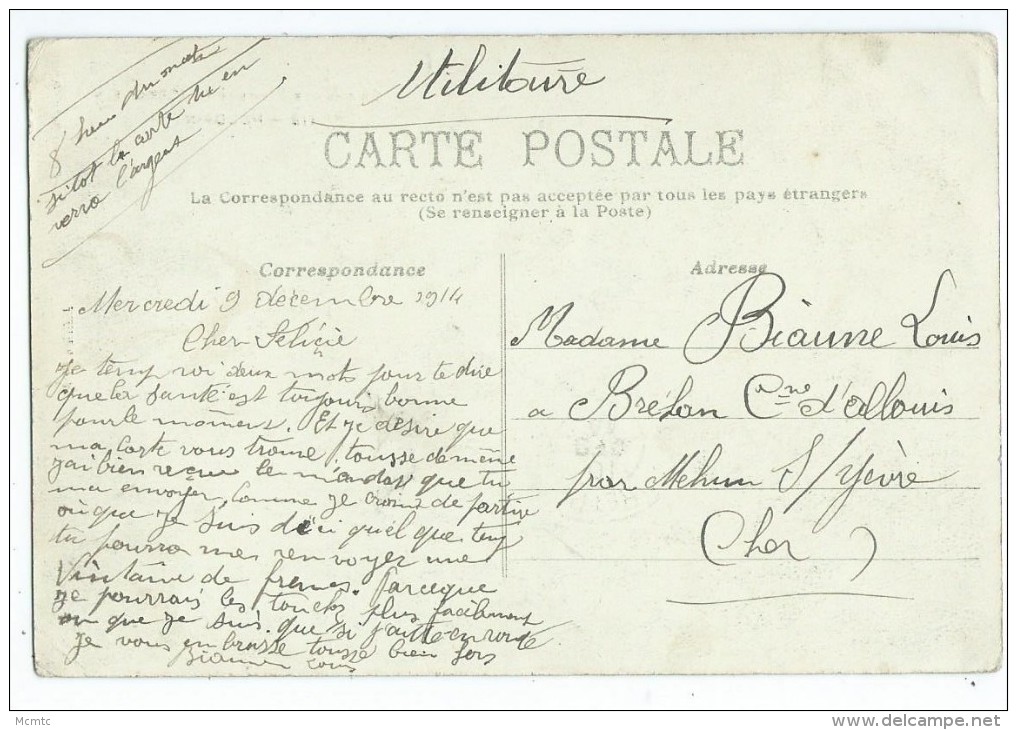 Militaire
8 heure du mat
sitot la carte tu en
verra l'argent
CARTE POSTALE
La Correspondance au recto n'est pas acceptée par tous les pays étrangers
(Se renseigner à la Poste)
Correspondance
Mercredi 9 décembre 1914
Cher Féliçie
Je temp voi deux mots pour te dire
que la santé est toujour bonne
pour le moment. Et je désire que
ma carte vous trouve tousse de même
j'ai bien reçue le mandat que tu
ma envoyer, comme je crains de partire
où que je suis d'ici quel que temp
tu pourra mes renvoyer une
Vintaine de francs. Parceque
je pourrais les toucher plus facilement
ou que je suis. que si j'aitte en route
Je vous embrasse tousse bien fors
Biaune Louis
Adresse
Madame Biaune Louis
a Brétan Cne d'Allouis
par Mehun S/Yèvre
Cher
Mcmtc
www.delcampe.net